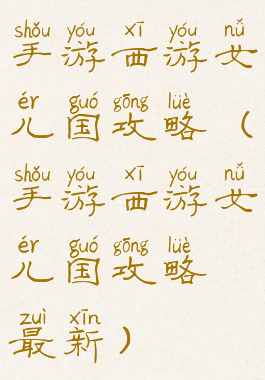 shǒu yóu xī yóu nǚ
手游西游女
ér guó gōng lüè
儿国攻略（
shǒu yóu xī yóu nǚ
手游西游女
ér guó gōng lüè
儿国攻略
zuì xīn
最新）